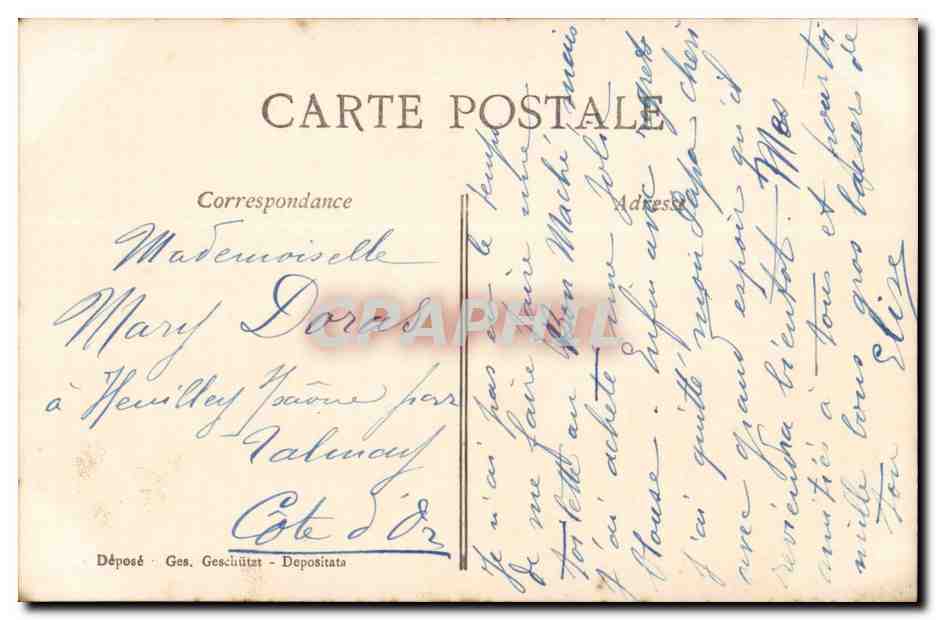 CARTE POSTALE
Correspondance
Adresse
Mademoiselle
Mary Doras
à Heuilley s/ Saône par
Talmay
Côte d'Or
Déposé - Ges. Geschützt - Depositata
Je n'ai pas eu le temps
de me faire faire une
toilette au Maché mais
j'ai acheté une jolie
blouse. Enfin avec regrets
j'ai quitté mon Papa cheri
avec grand espoir qu'il
reviendra bientot. Mes
amitiés à tous et pour toi
mille bons gros baisers de
ton
Elise
CPAPHIL